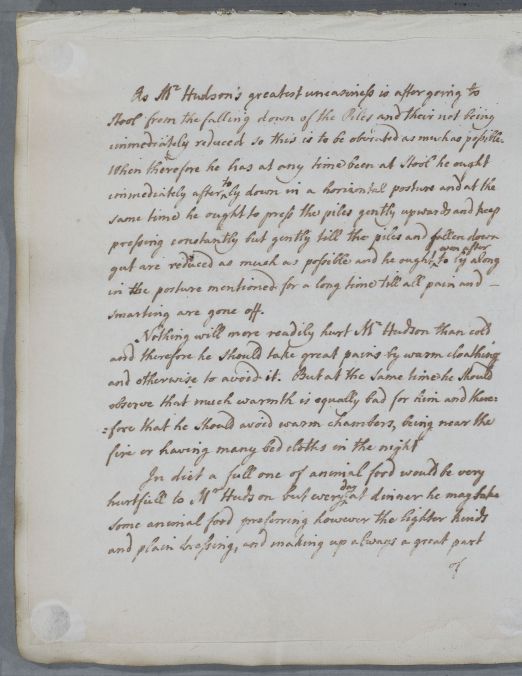 As Mr Hudson's greatest uneasiness is after going to
stool from the falling down of the Piles and their not being
immediately reduced so this is to be obviated as much as possible.
When therefore he has at any time been at Stool he ought
immediately after to ly down in a horizontal posture and at the
same time he ought to press the piles gently upwards and keep
pressing constantly but gently till the piles and fallen down
gut are reduced as much as possible and he ought even after to ly along
in the posture mentioned for a long time till all pain and -
smarting are gone off.
Nothing will more readily hurt Mr Hudson than cold
and therefore he should take great pains by warm cloathing
and otherwise to avoid it. But at the same time he should
observe that much warmth is equally bad for him and there:
:fore that he should avoid warm chambers, being near the
fire or having many bed cloths in the night
In diet a full one of animal food would be very
hurtfull to Mr Hudson but every day at dinner he may take
some animal food preferring however the lighter kinds
and plain dressing, and making up always a great part
of